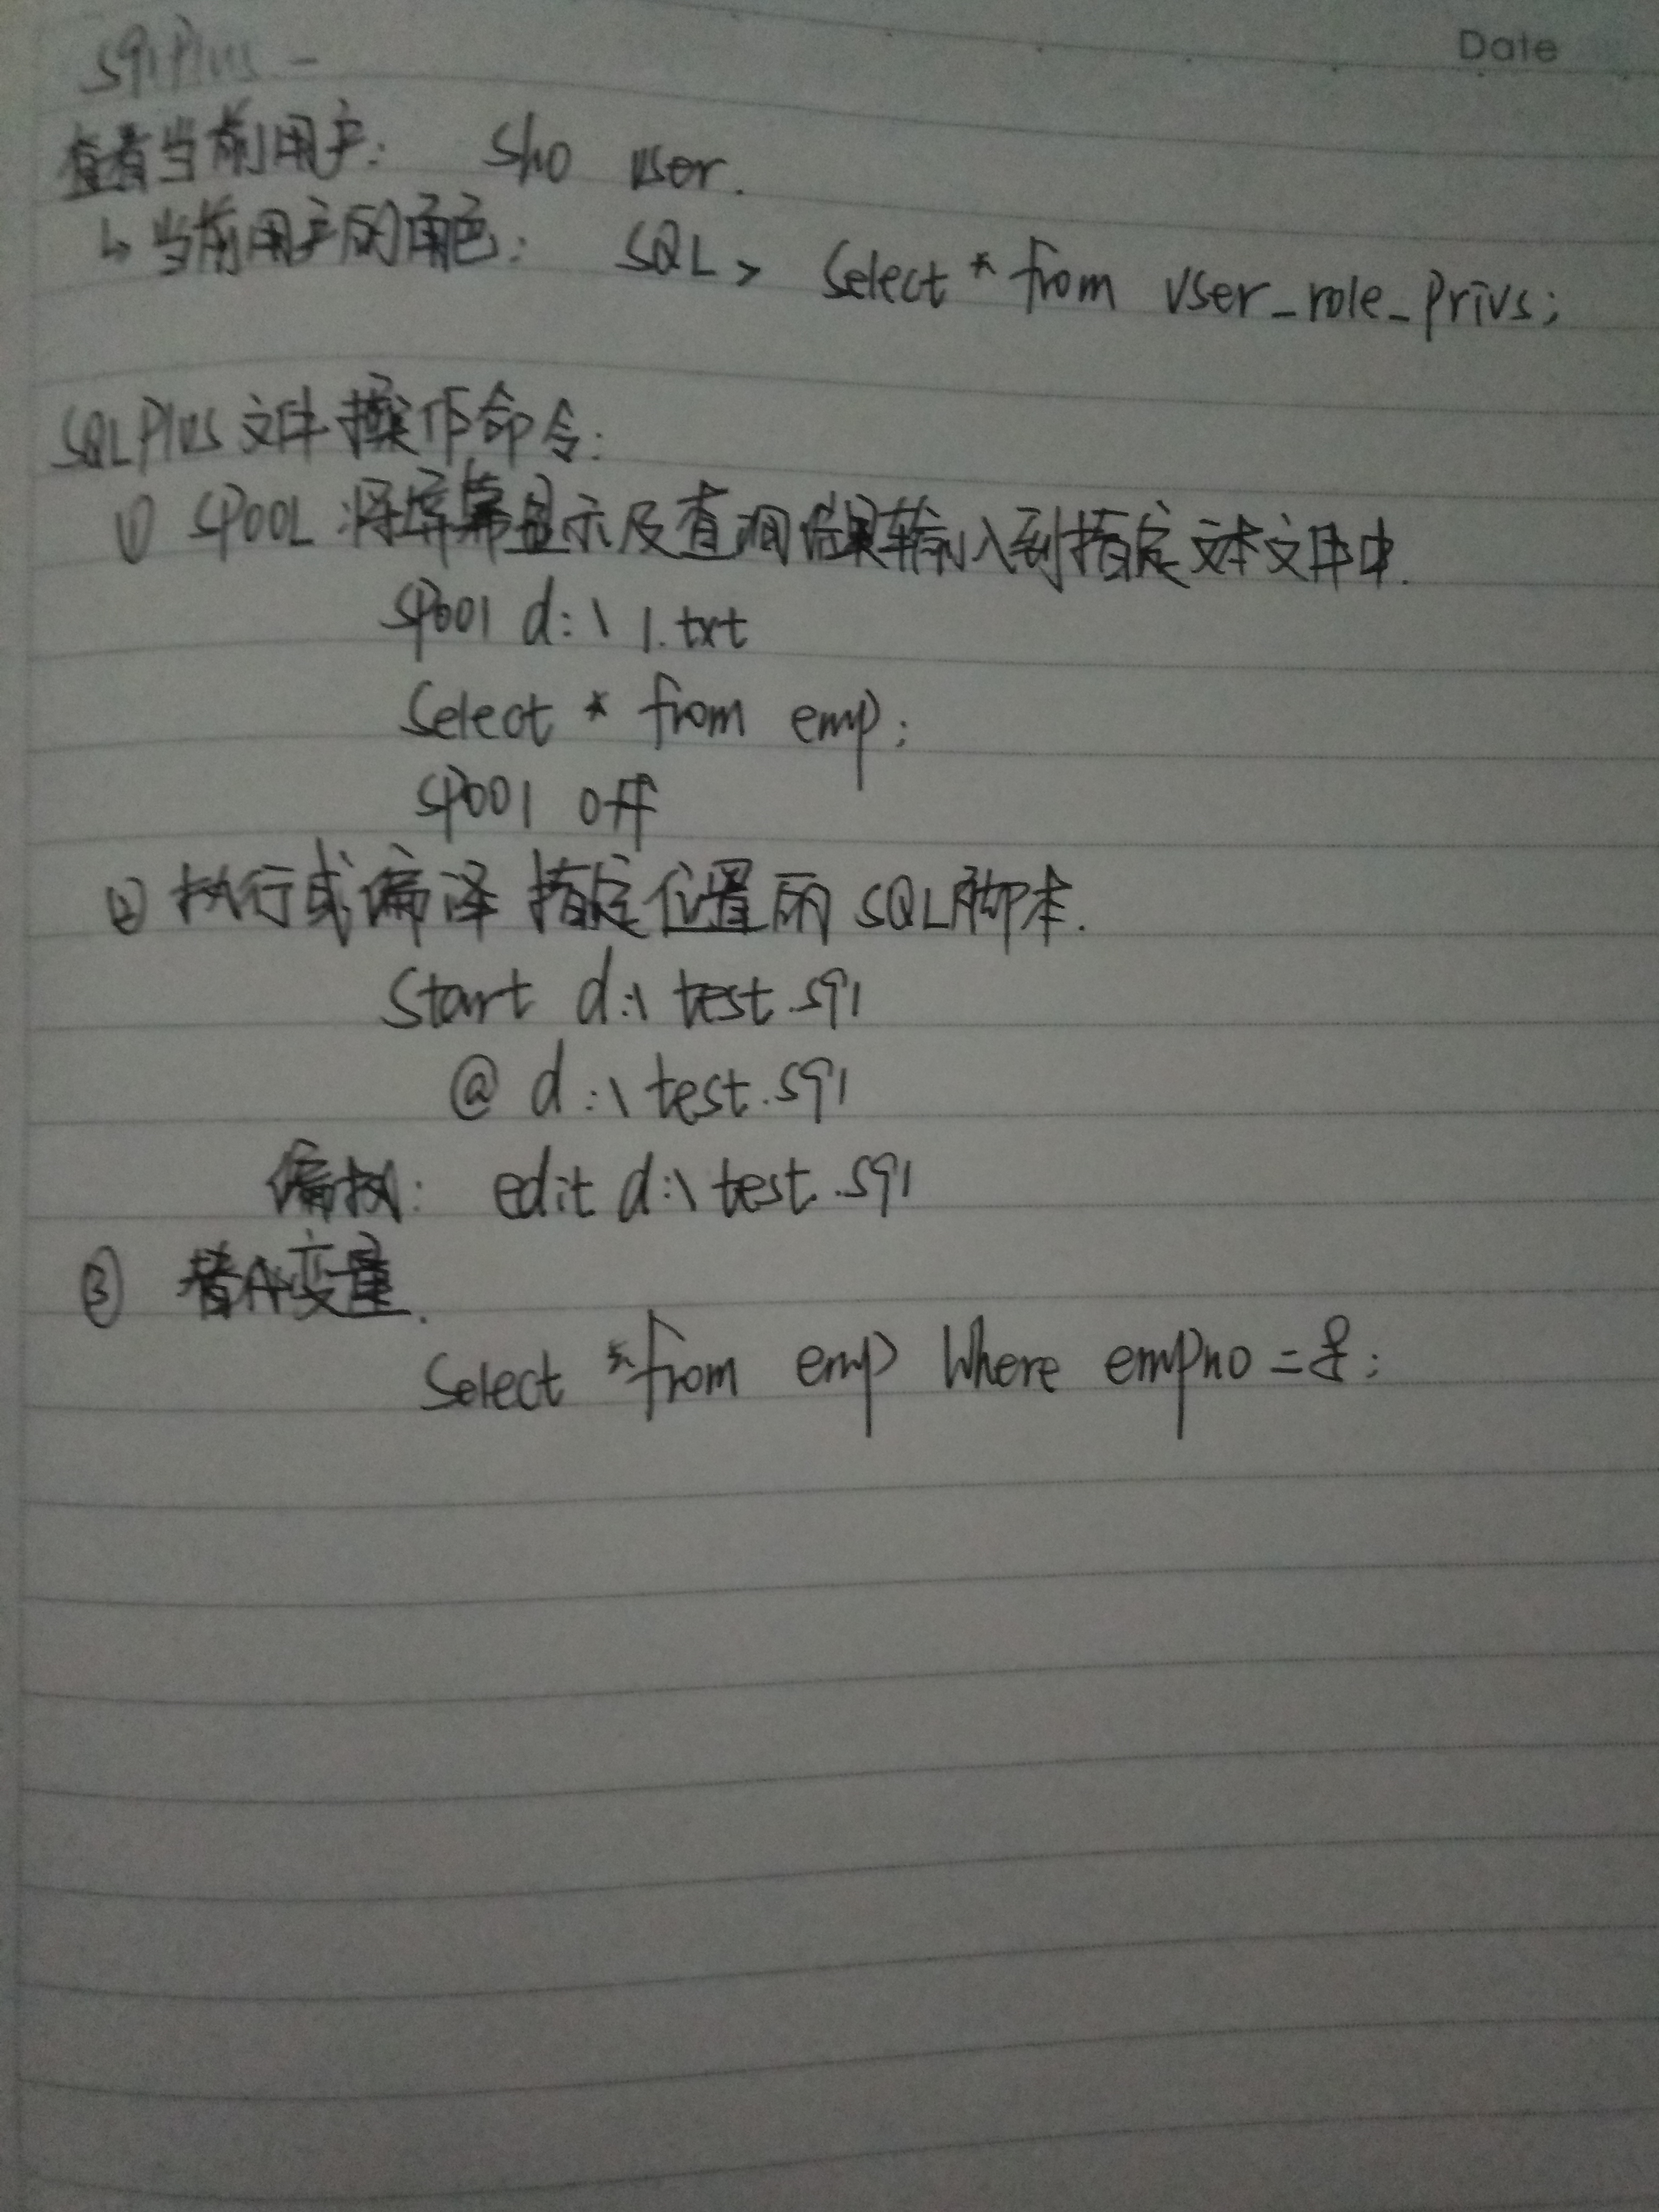 Date
sqlplus -
查看当前用户: Sho user.
↳ 当前用户的角色: SQL > Select * from user_role_privs;
SQLPlus 文件操作命令:
① SPOOL 将屏幕显示及查询结果输入到指定文本文件中.
spool d:\1.txt
Select * from emp;
spool off
② 执行或编译 指定位置的 SQL脚本.
Start d:\test.sql
@ d:\test.sql
编执: edit d:\test.sql
③ 替代变量.
Select * from emp Where empno = &;